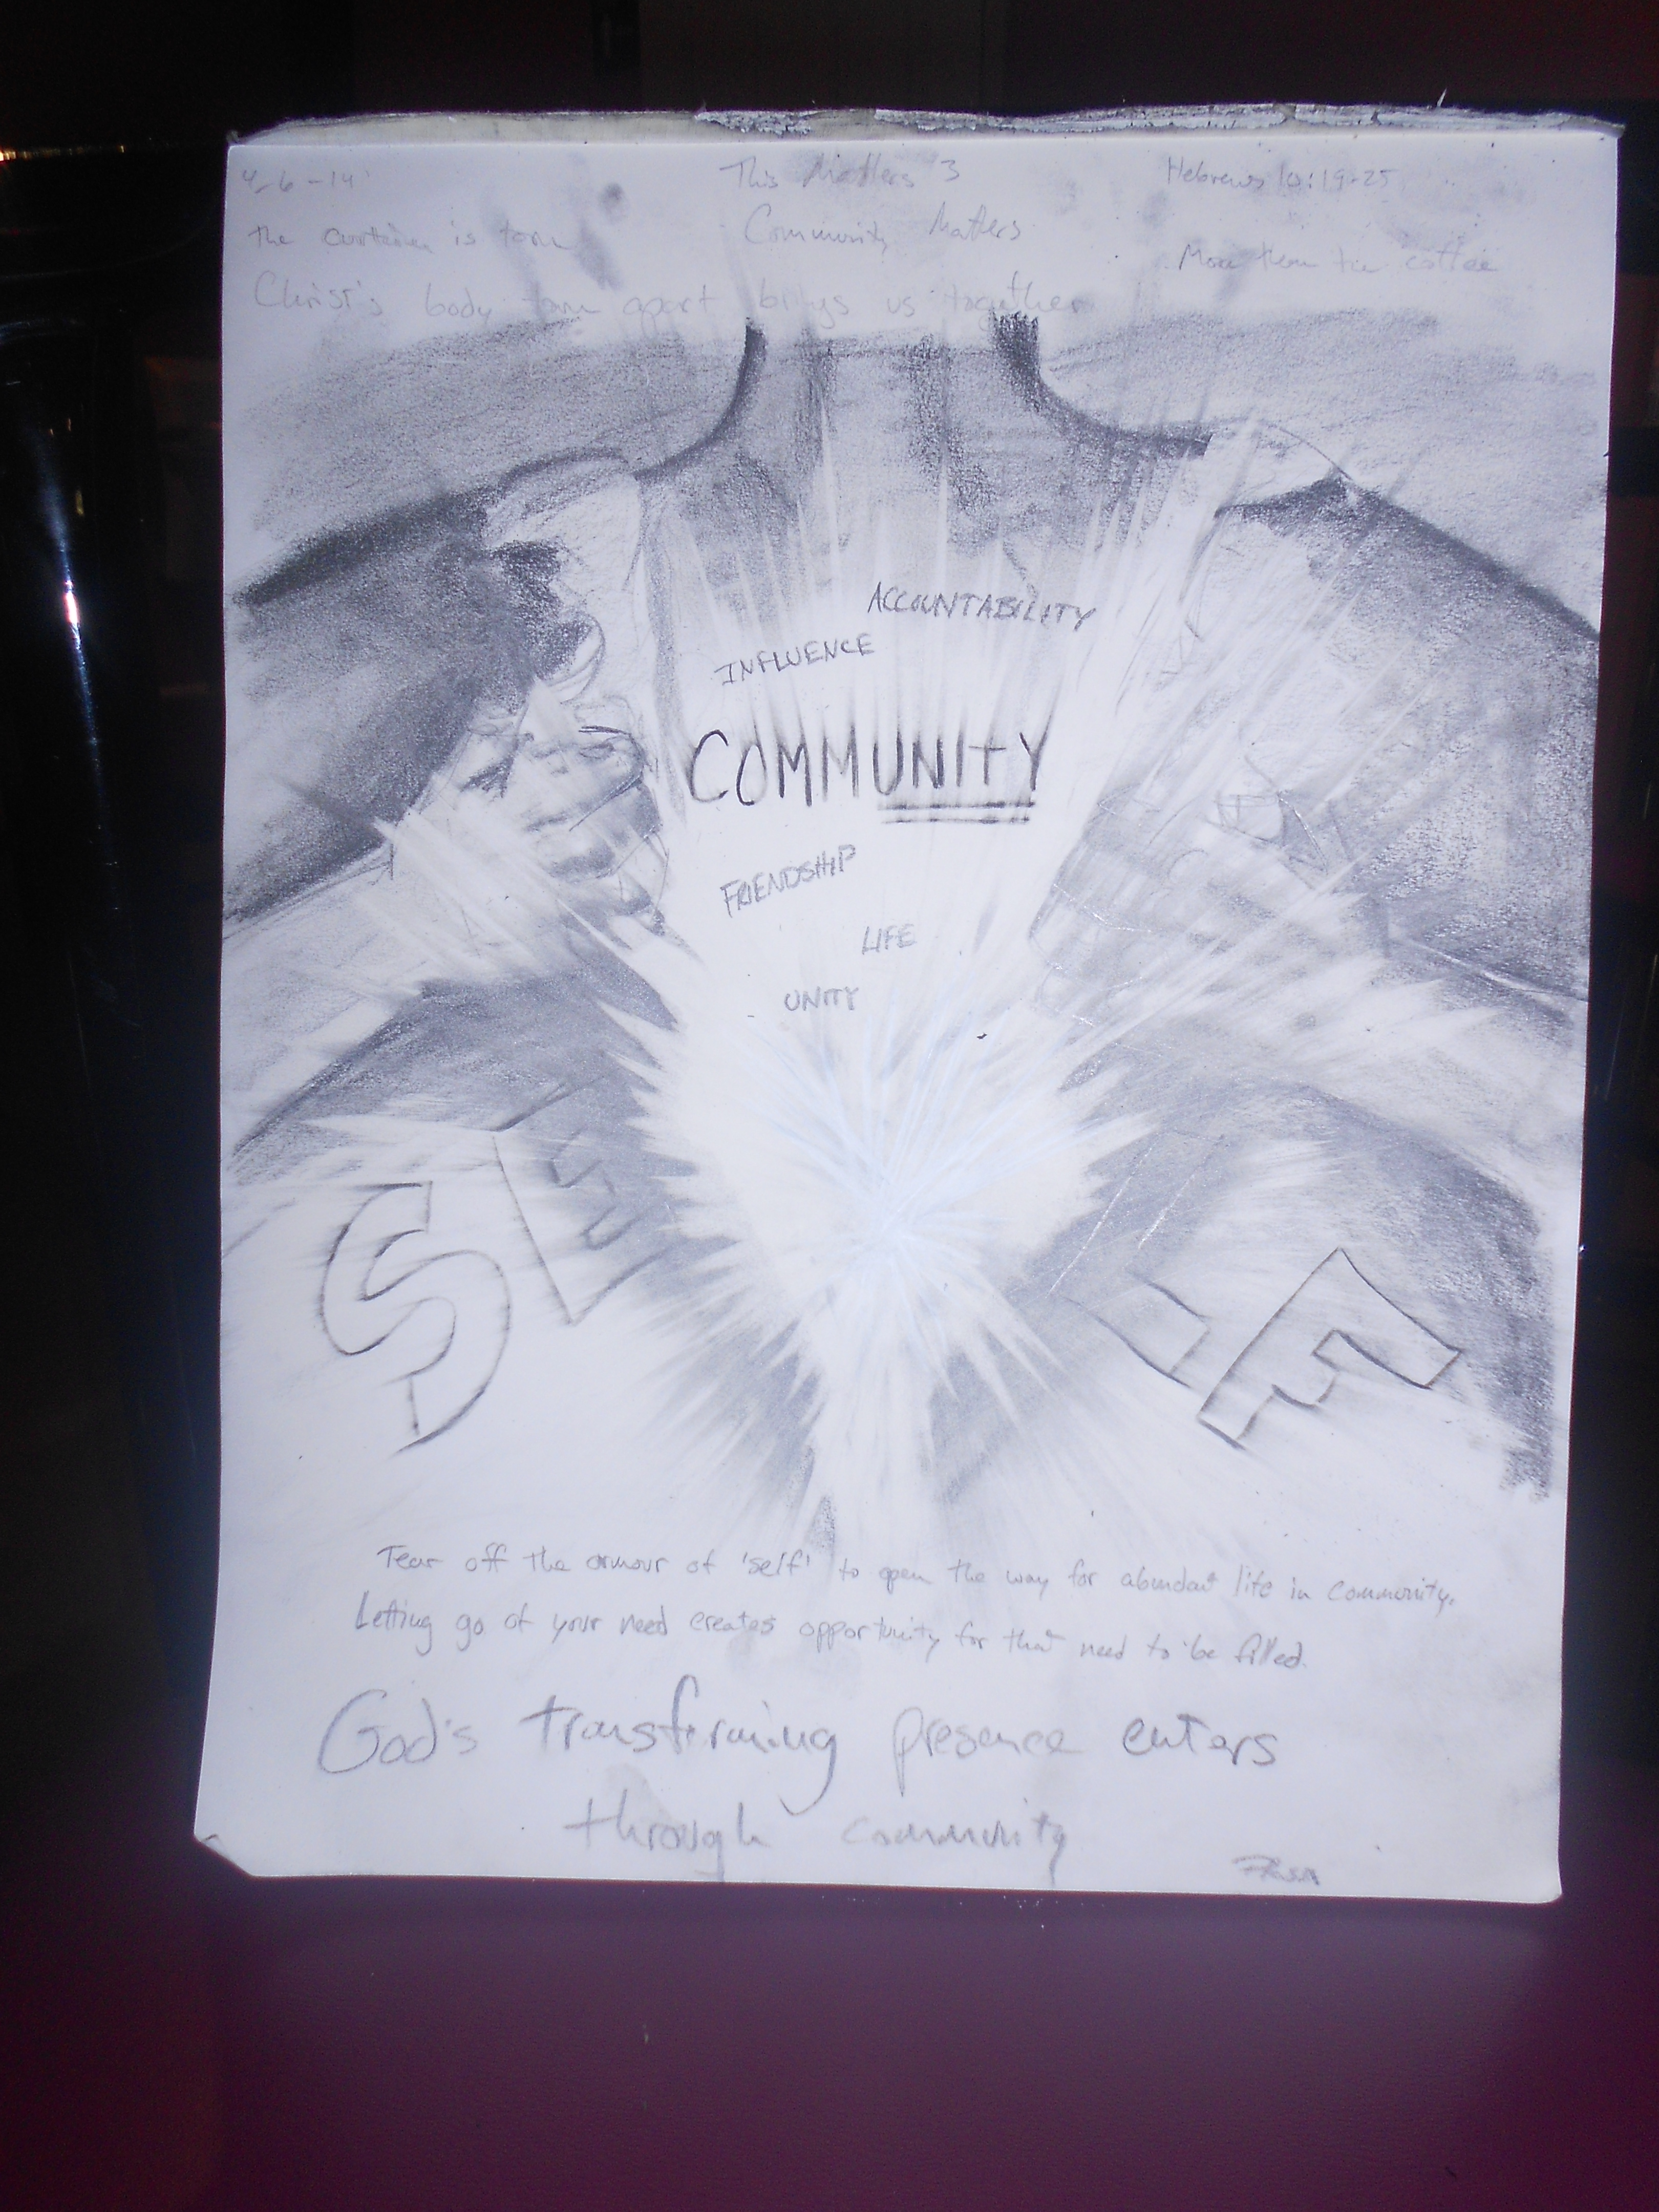 4-6-14'
This Matters 3
Hebrews 10:19-25
the curtain is torn
Community Matters
More than the coffee
Christ's body torn apart brings us together
ACCOUNTABILITY
INFLUENCE
COMMUNITY
FRIENDSHIP
LIFE
UNITY
SELF
Tear off the armour of 'self' to open the way for abundant life in community.
Letting go of your need creates opportunity for that need to be filled.
God's transforming presence enters
through community